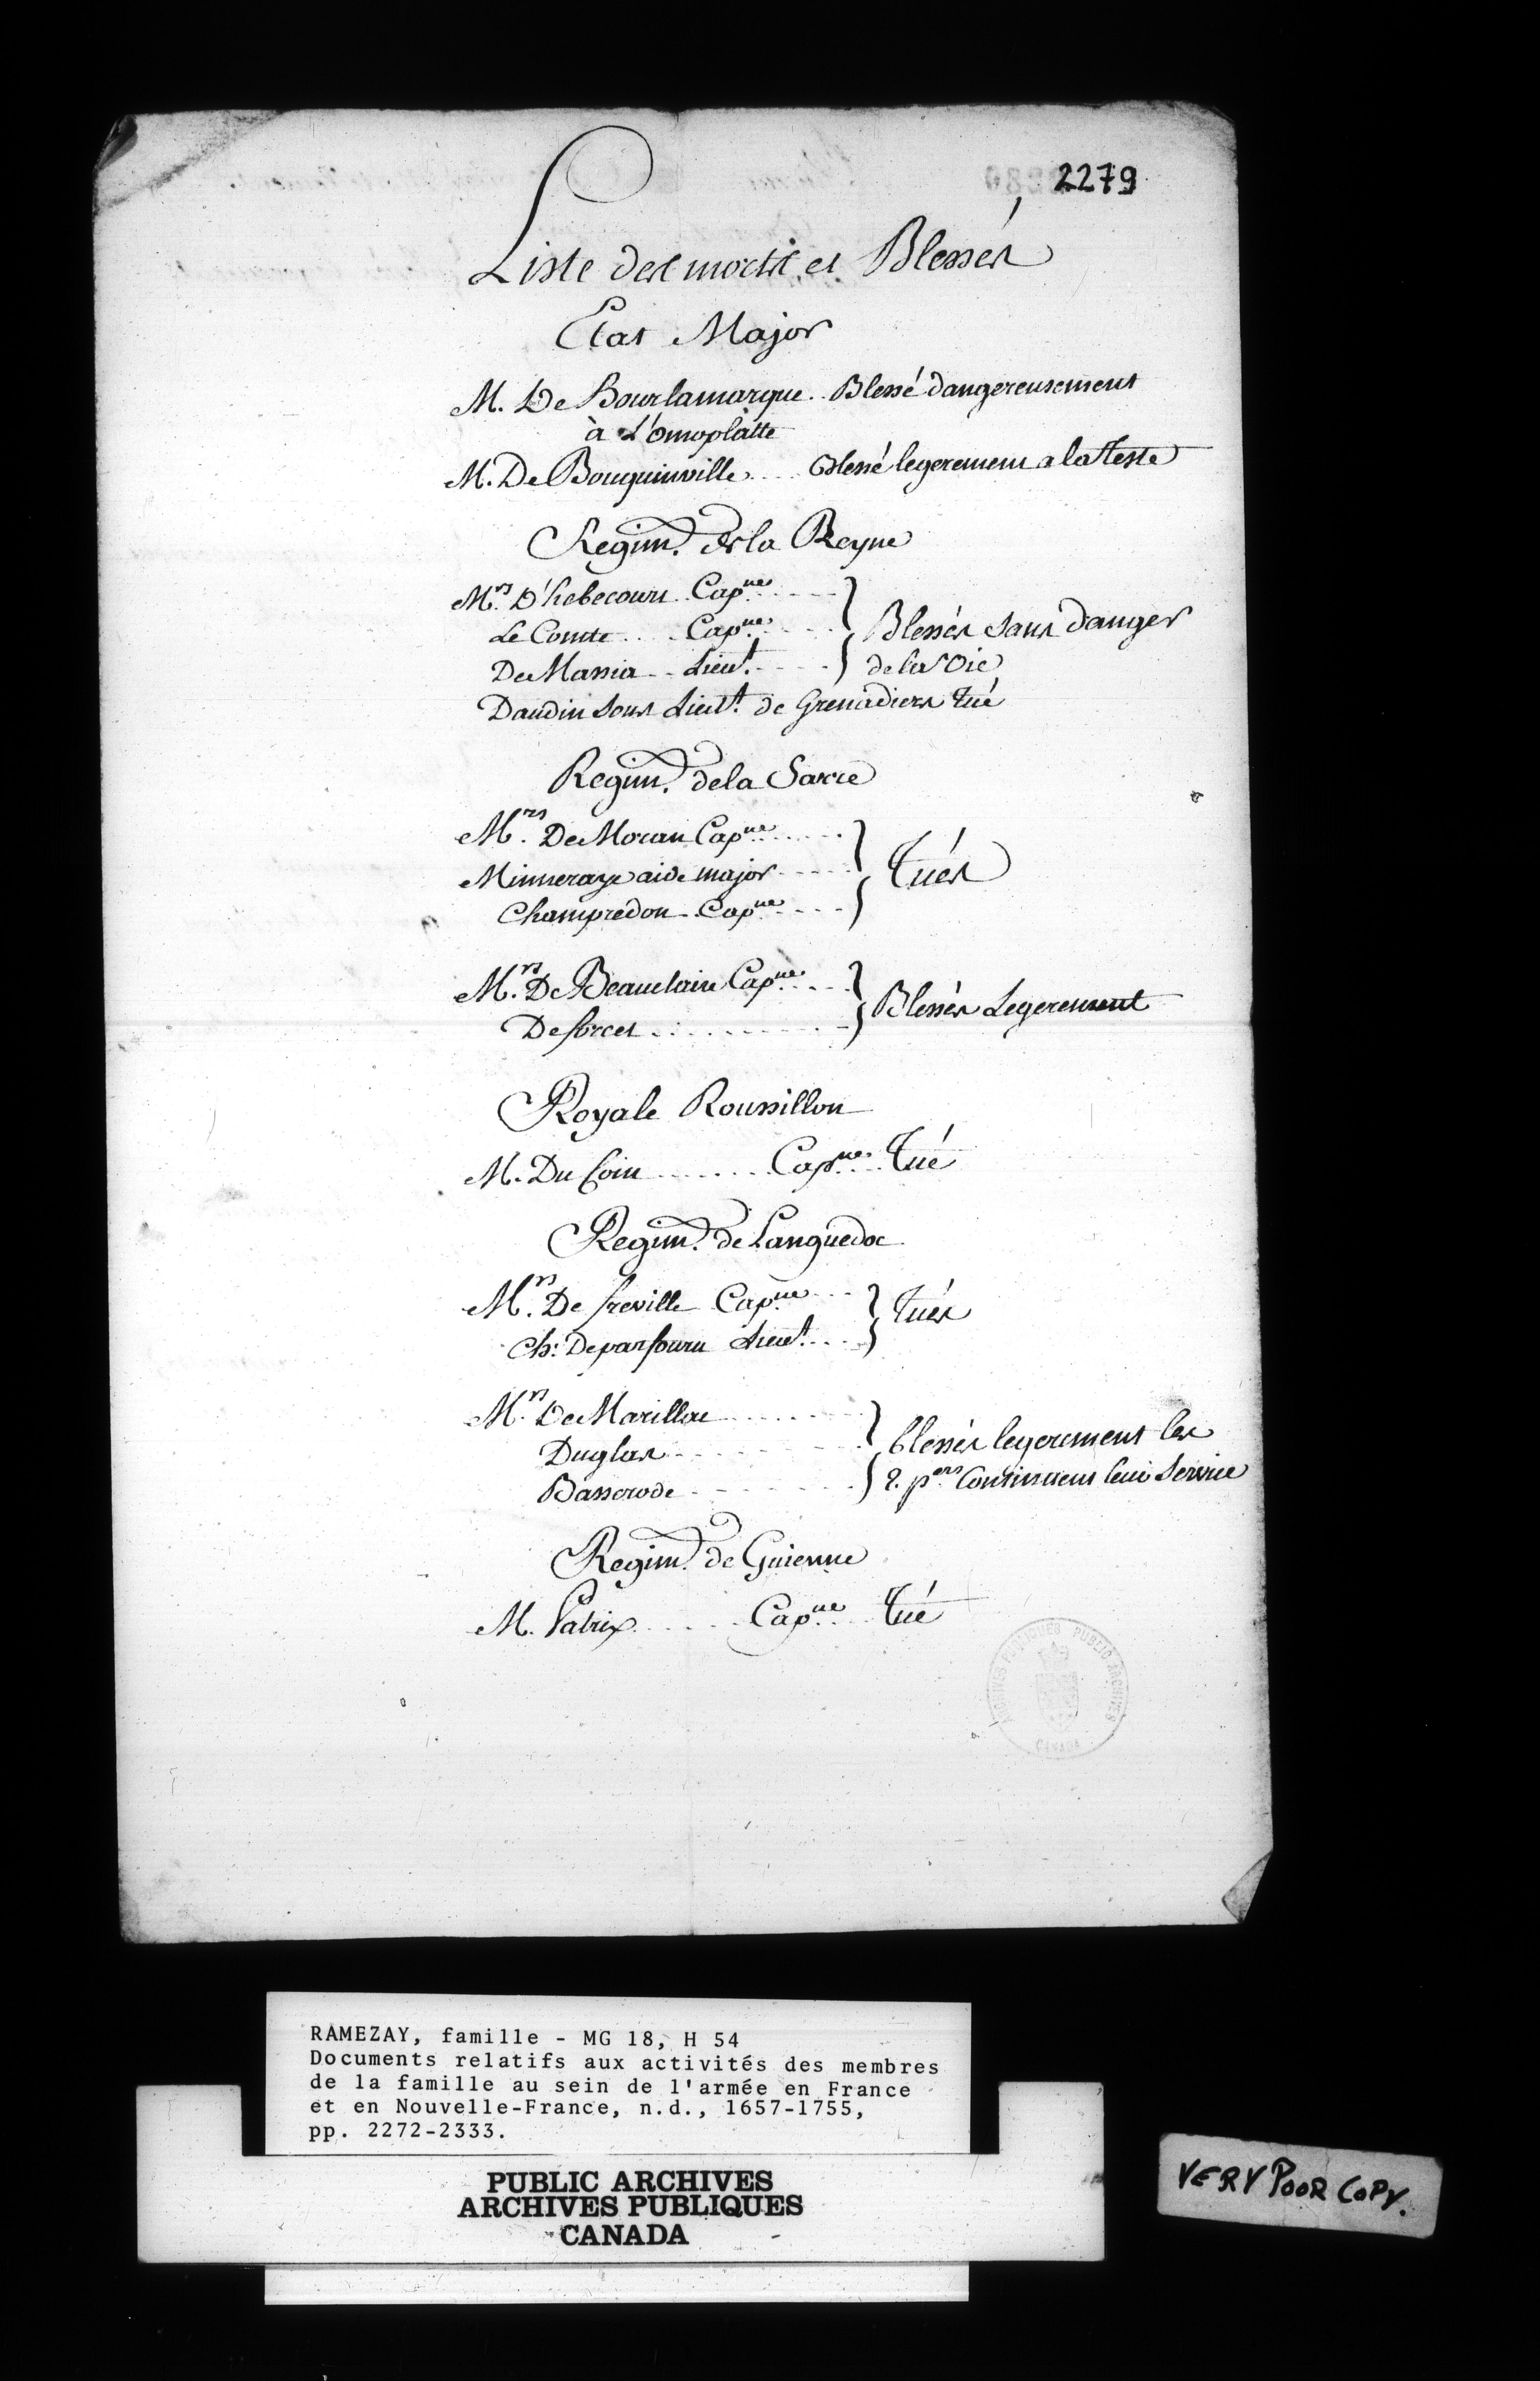 2279
Liste des morts et Blessés
Etat Major
M. De Bourlamarque.. Blessé dangereusement
à L'omoplatte
M. De Bouguinville.... Blessé legerement a la Teste
Regim.t de la Reyne
M.rs D'hebecourt Cap.ne
Le Comte.... Cap.ne
De Massia -- Lieut. } Blessés sans danger de la Vie
Daudin sous Lieut.t de Grenadiers tué
Regim.t de la Sarre
M.rs De Moran Cap.ne
Minneraye aide major
Champredon Cap.ne } Tués
M.rs De Beauclair Cap.ne
De forcet } Blessés Legerement
Royale Roussillon
M. Du Coin ....... Cap.ne Tué
Regim.t de Languedoc
M.rs De freville Cap.ne
Ch: De parfouru Lieut. } Tués
M.rs De Marillac
Duglas
Basserode } blessés legerement les
2. p.ers Continuent leur Service
Regim.t de Guienne
M. Patrix ...... Cap.ne Tué
ARCHIVES PUBLIQUES PUBLIC ARCHIVES
CANADA
RAMEZAY, famille - MG 18, H 54
Documents relatifs aux activités des membres
de la famille au sein de l'armée en France
et en Nouvelle-France, n.d., 1657-1755,
pp. 2272-2333.
PUBLIC ARCHIVES
ARCHIVES PUBLIQUES
CANADA
VERY POOR COPY.